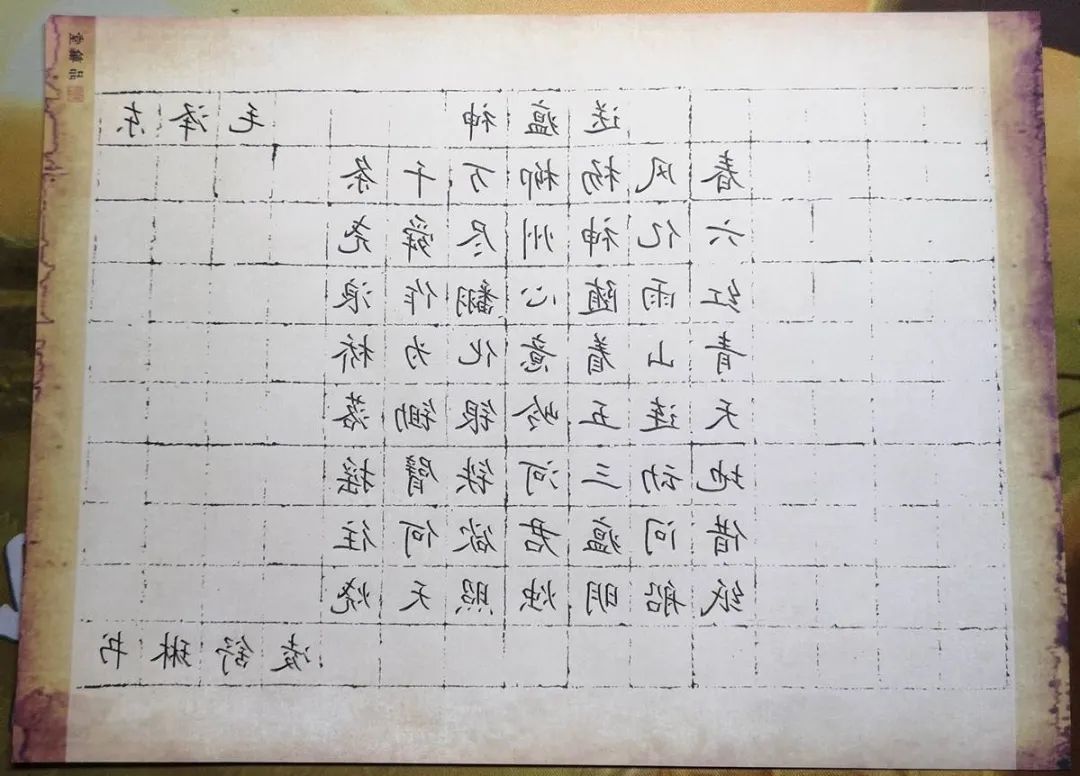 送瘟神 毛泽东
春风杨柳万千条
六亿神州尽舜尧
红雨随心翻作浪
青山着意化为桥
天连五岭银锄落
地动三河铁臂摇
借问瘟君欲何往
纸船明烛照天烧
凌舒琳书